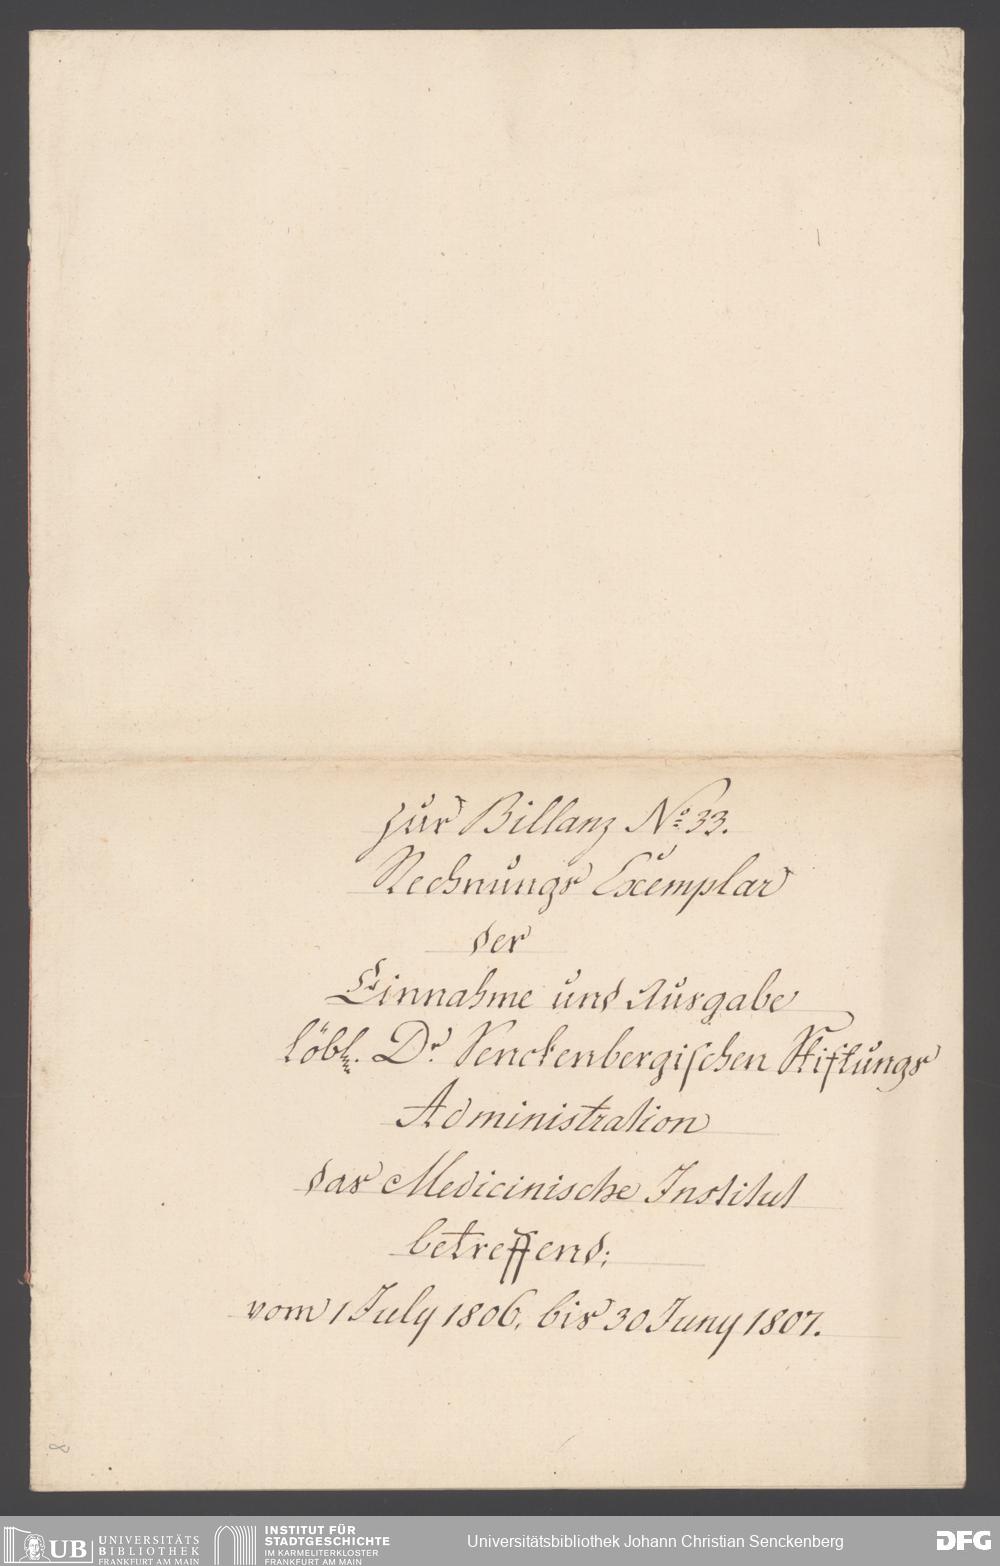 zur Billanz No. 33.
Rechnungs Exemplar
der
Einnahme und Ausgabe
löbl. Dr. Senckenbergischen Stiftungs
Administration
das Medicinische Institut
betreffend;
vom 1 July 1806. bis 30 Juny 1807.
UB UNIVERSITÄTS
BIBLIOTHEK
FRANKFURT AM MAIN
INSTITUT FÜR
STADTGESCHICHTE
IM KARMELITERKLOSTER
FRANKFURT AM MAIN
Universitätsbibliothek Johann Christian Senckenberg
DFG